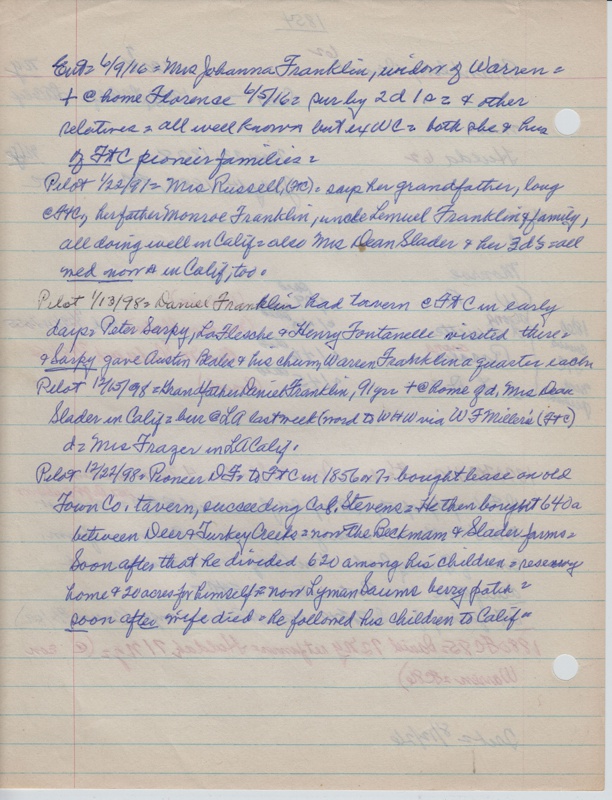 Ent= 6/9/16 = Mrs Johanna Franklin, widow of Warren =
+ @ home Florence 6/5/16 = sur by 2d 1s = & other
relatives = all well known but ex WC = both she & hus
of FtC pioneer families =
Pilot 1/22/91 = Mrs Russell, (FtC) = says her grandfather, long
@ FtC, her father Monroe Franklin, uncle Lemuel Franklin & family,
all doing well in Calif = also Mrs Dean Slader & her 3d's = all
med now & in Calif, too.
Pilot 1/13/98 = Daniel Franklin had tavern @ FtC in early
days = Peter Sarpy, LaFlesche & Henry Fontanelle visited there =
& Sarpy gave Austin Beales & his chum, Warren Franklin a quarter each
Pilot 12/15/98 = Grandfather Daniel Franklin, 91 yrs + @ home of d, Mrs Dean
Slader in Calif = bur @ LA last week (word to WHW via W F Miller's (FtC)
d = Mrs Frazer in LA Calif.
Pilot 12/22/98 = Pioneer D.F. to FtC in 1856 or 7 = bought lease on old
Town Co. tavern, succeeding Col. Stevens = He then bought 640 a
between Deer & Turkey Creeks = now the Beckman & Slader farms =
Soon after that he divided 620 among his children = reserving
home & 20 acres for himself = now Lyman Saums berry patch =
soon after wife died = he followed his children to Calif =